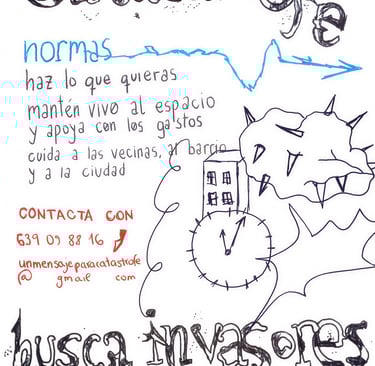 normas
haz lo que quieras
mantén vivo al espacio
y apoya con los gastos
cuida a las vecinas, al barrio
y a la ciudad
CONTACTA CON
639 09 88 16
unmensajeparacatastrofe
@ gmail com
busca invasores